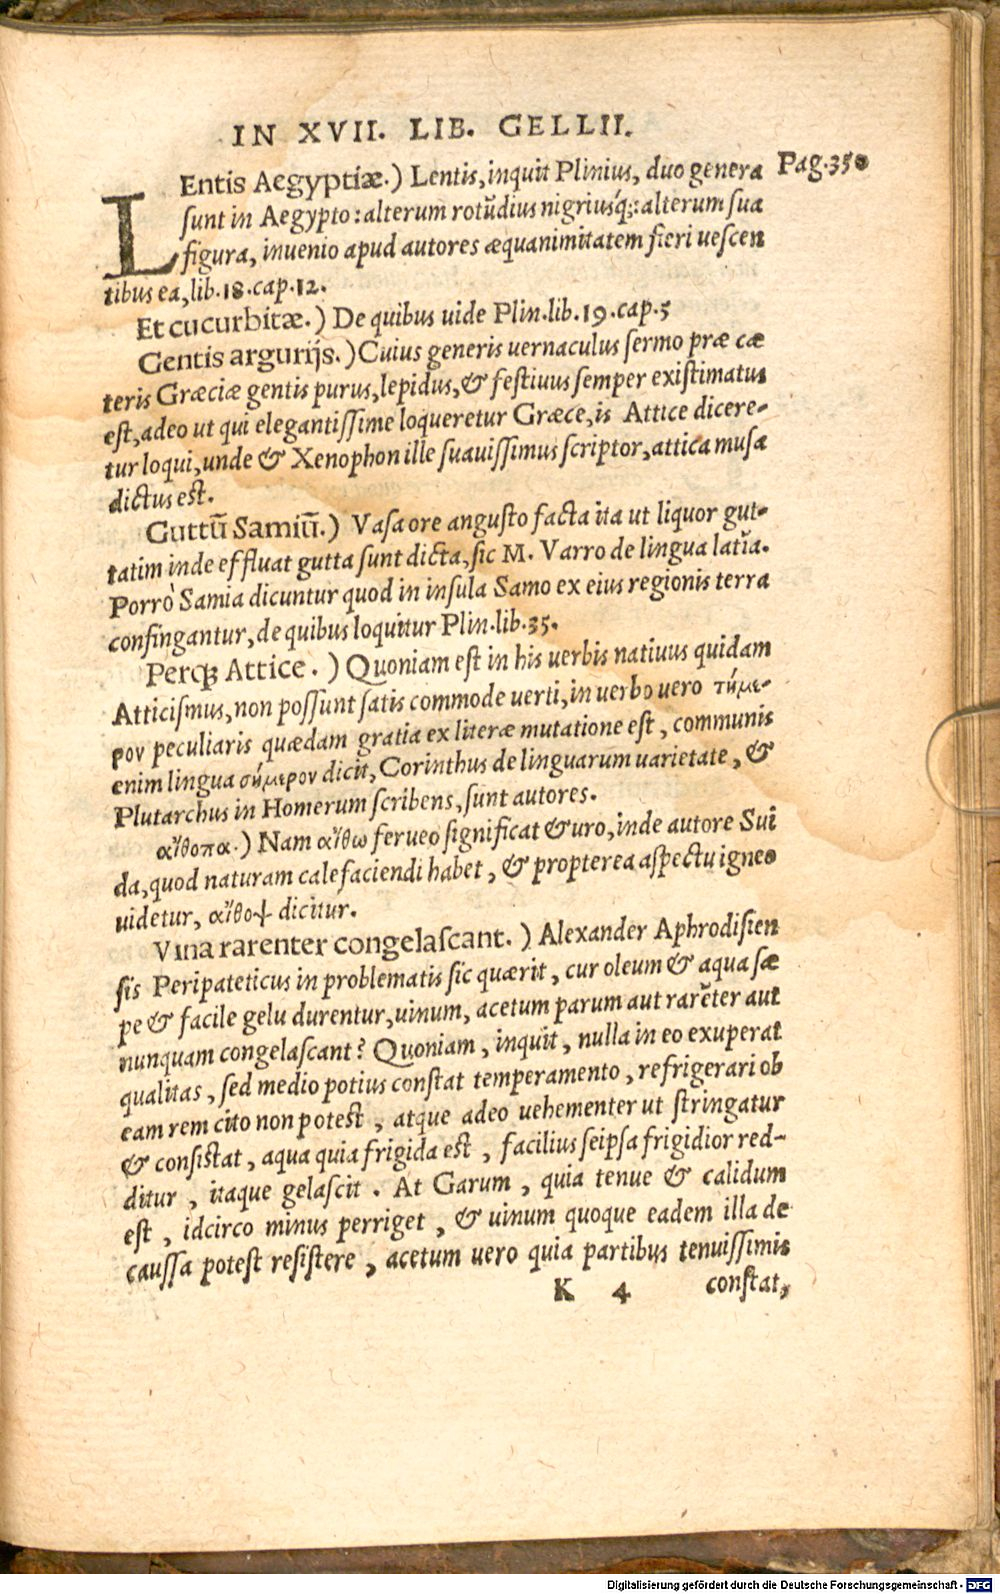 IN XVII. LIB. GELLII.
LEntis Aegyptiæ.) Lentis, inquit Plinius, duo genera Pag.350
sunt in Aegypto: alterum rotūdius nigriusq́;: alterum sua
figura, inuenio apud autores æquanimitatem fieri uescen
tibus ea, lib.18.cap.12.
Et cucurbitæ.) De quibus uide Plin.lib.19.cap.5
Gentis argurijs.) Cuius generis uernaculus sermo præ cæ
teris Græciæ gentis purus, lepidus, & festiuus semper existimatus
est, adeo ut qui elegantissime loqueretur Græce, is Attice dicere-
tur loqui, unde & Xenophon ille suauissimus scriptor, attica musa
dictus est.
Guttū Samiū.) Vasa ore angusto facta ita ut liquor gut-
tatim inde effluat gutta sunt dicta, sic M. Varro de lingua latīa.
Porrò Samia dicuntur quod in insula Samo ex eius regionis terra
confingantur, de quibus loquitur Plin.lib.35.
Perqꝫ Attice.) Quoniam est in his uerbis natiuus quidam
Atticismus, non possunt satis commode uerti, in uerbo uero τήμε-
ρον peculiaris quædam gratia ex literæ mutatione est, communis
enim lingua σήμερον dicit, Corinthus de linguarum uarietate, &
Plutarchus in Homerum scribens, sunt autores.
αἴθοπα.) Nam αἴθω ferueo significat & uro, inde autore Sui
da, quod naturam calefaciendi habet, & propterea aspectu igneo
uidetur, αἴθοψ dicitur.
Vina rarenter congelascant.) Alexander Aphrodisien
sis Peripateticus in problematis sic quærit, cur oleum & aqua sæ
pe & facile gelu durentur, uinum, acetum parum aut rarēter aut
nunquam congelascant? Quoniam, inquit, nulla in eo exuperat
qualitas, sed medio potius constat temperamento, refrigerari ob
eam rem cito non potest, atque adeo uehementer ut stringatur
& consistat, aqua quia frigida est, facilius seipsa frigidior red-
ditur, itaque gelascit. At Garum, quia tenue & calidum
est, idcirco minus perriget, & uinum quoque eadem illa de
caussa potest resistere, acetum uero quia partibus tenuissimis
K 4 constat,
Digitalisierung gefördert durch die Deutsche Forschungsgemeinschaft - DFG